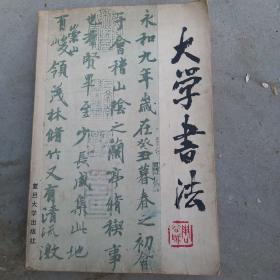 大学书法
永和九年歲在癸丑暮春之初會
于會稽山陰之蘭亭脩禊事
也羣賢畢至少長咸集此地
有崇山
峻領茂林脩竹又有清流激
复旦大学出版社